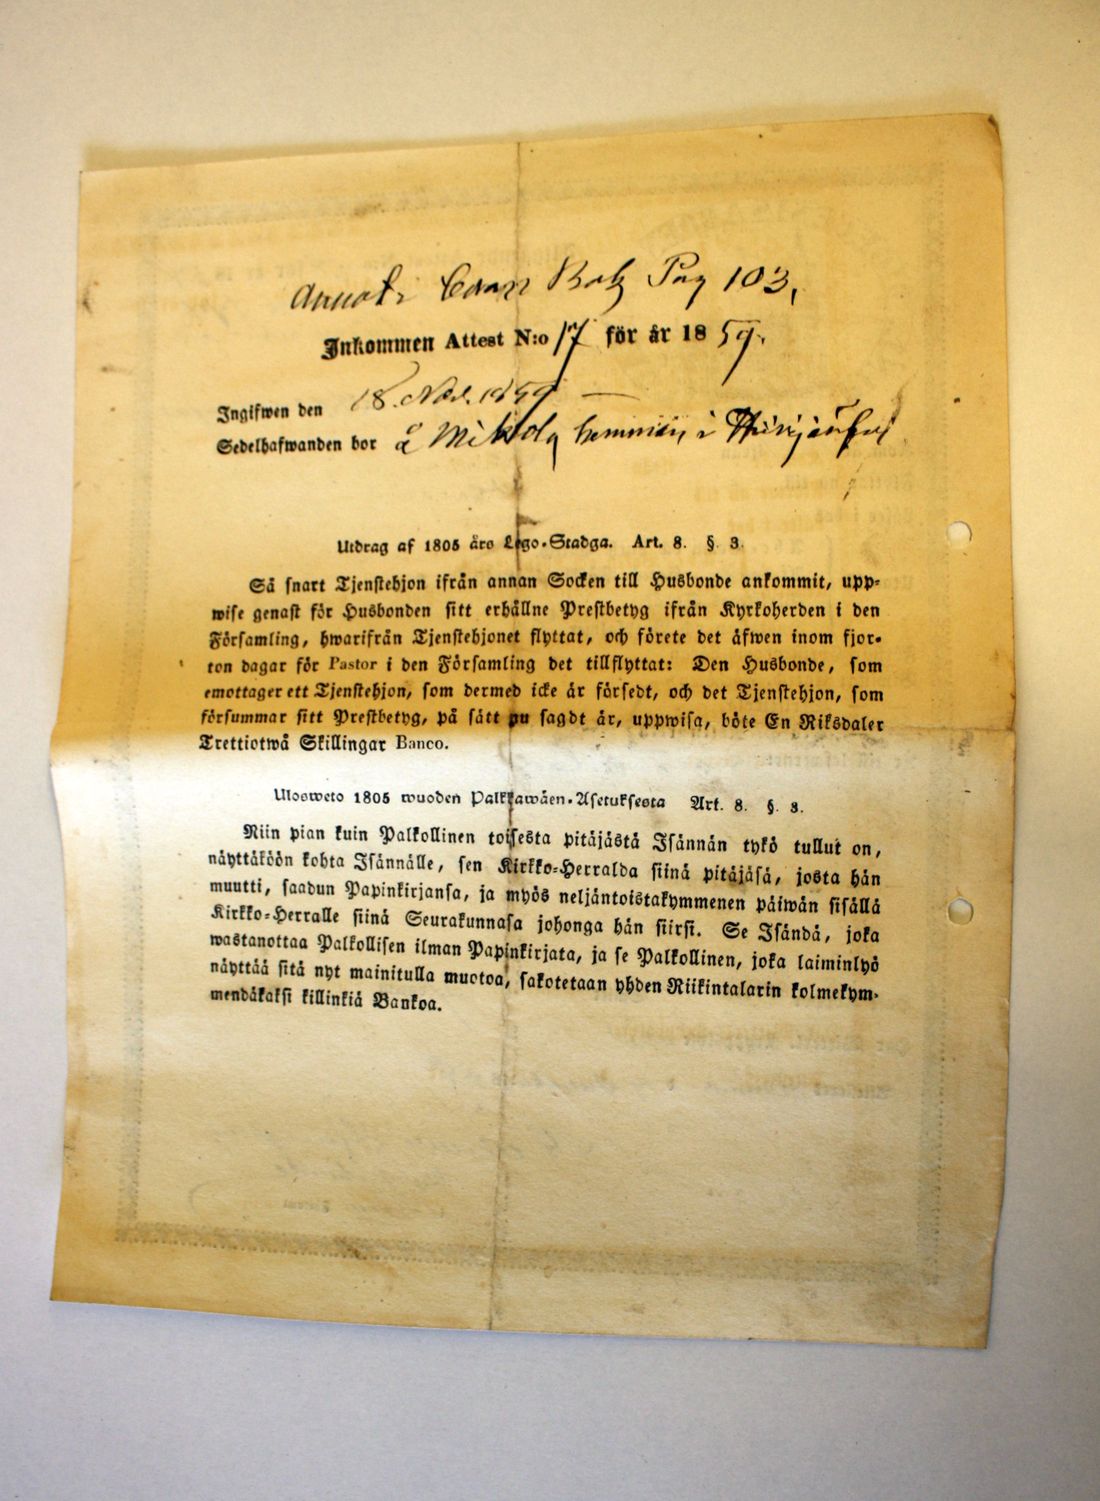 Pag 103,
Inkommen Attest N:o 17 för år 1859.
Ingifwen den 18. Nov. 1859
Sedelhafwanden bor å Mikola hemman i
Utdrag af 1805 års Lego-Stadga. Art. 8. §. 3.
Så snart Tjenstehjon ifrån annan Socken till Husbonde ankommit, upp-
wise genast för Husbonden sitt erhållne Prestbetyg ifrån Kyrkoherden i den
Församling, hwarifrån Tjenstehjonet flyttat, och förete det äfwen inom fjor-
ton dagar för Pastor i den Församling det tillflyttat: Den Husbonde, som
emottager ett Tjenstehjon, som dermed icke är försedt, och det Tjenstehjon, som
försummar sitt Prestbetyg, på sätt nu sagdt är, uppwisa, böte En Riksdaler
Trettiotwå Skillingar Banco.
Ulosweto 1805 wuoden Palkkawäen-Asetuksesta Art. 8. §. 3.
Niin pian kuin Palkollinen toisesta pitäjästä Isännän tykö tullut on,
näyttäköön kohta Isännälle, sen Kirkko-Herralda siinä pitäjäsä, josta hän
muutti, saadun Papinkirjansa, ja myös neljäntoistakymmenen päiwän sisällä
Kirkko-Herralle siinä Seurakunnasa johonga hän siirsi. Se Isändä, joka
wastanottaa Palkollisen ilman Papinkirjata, ja se Palkollinen, joka laiminlyö
näyttää sitä nyt mainitulla muotoa, sakotetaan yhden Riikintalarin kolmekym-
mendäkaksi killinkiä Bankoa.